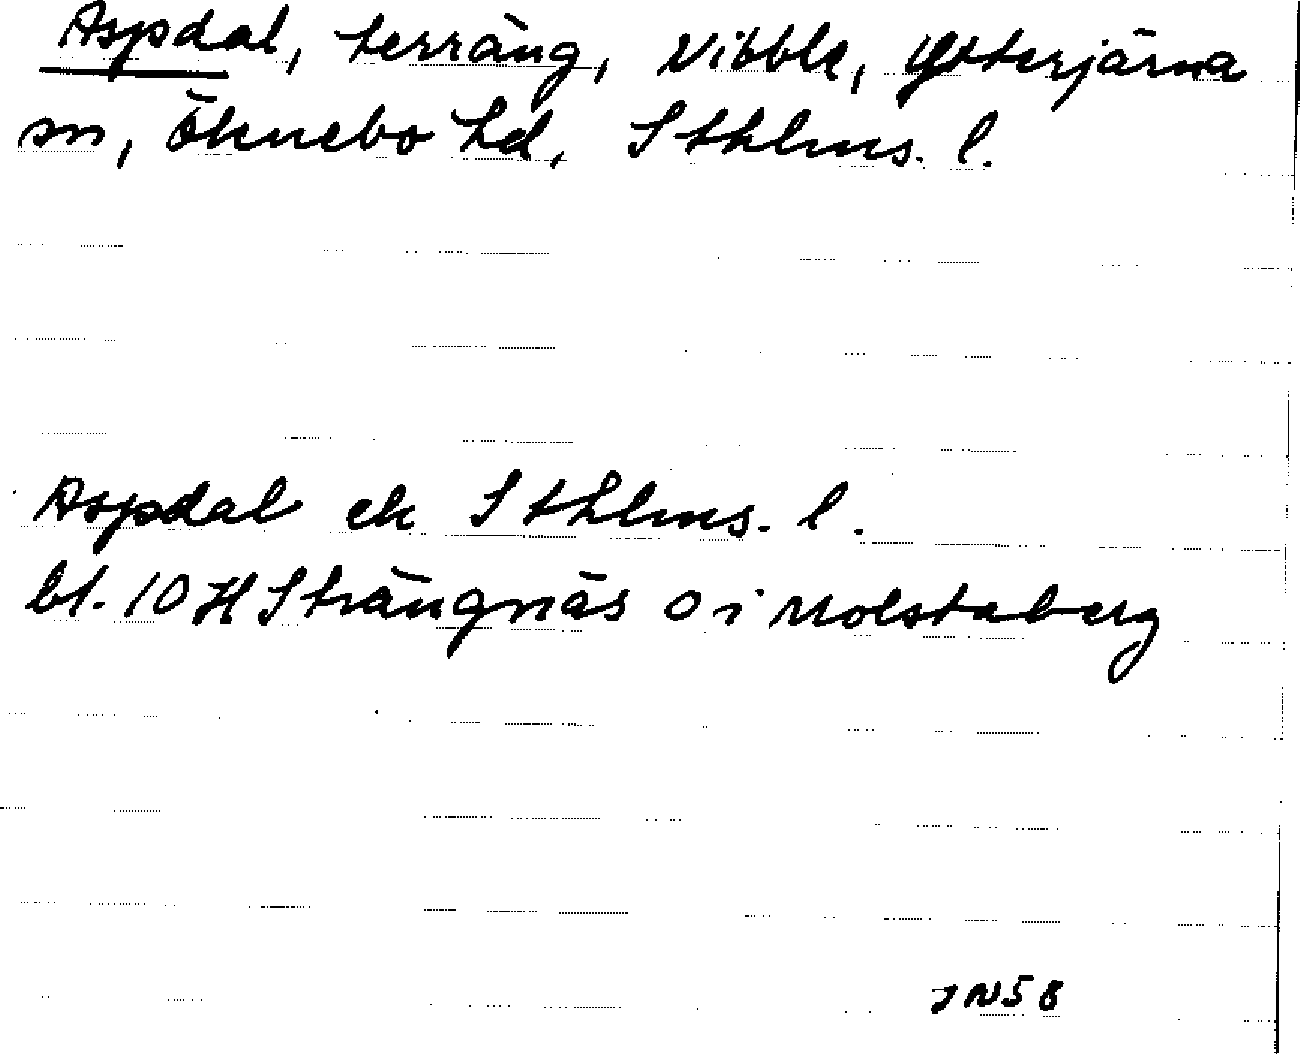 Aspdal, terräng, Vibble, Ytterjärna
sn, Öknebo hd, Sthlms. l.
Aspdal ek Sthlms. l.
bl. 10 H Strängnäs O i Molstaberg
JN58